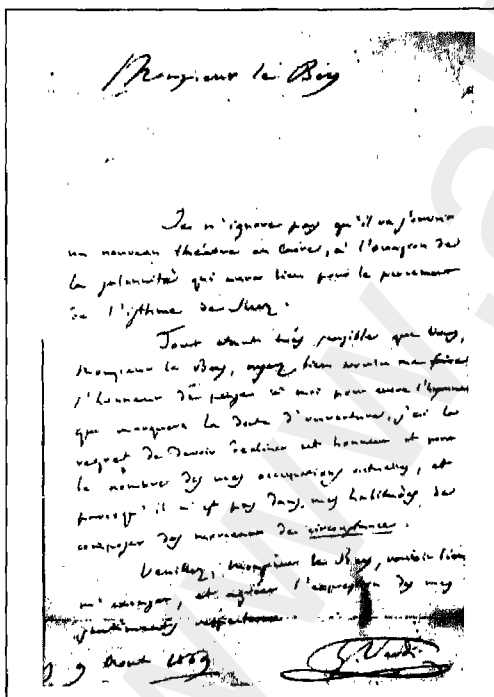 Monsieur le Bey
Je n'ignorais pas qu'il va s'ouvrir
un nouveau théâtre au Caire, à l'occasion de
la solennité qui aura lieu pour le percement
de l'isthme de Suez.
Tout étant très sensible que Vous,
Monsieur le Bey, ayez bien voulu me faire
l'honneur de penser à moi pour l'hymne
que marquera la date d'ouverture, j'ai le
regret de devoir décliner cet honneur et pour
le nombre des mes occupations actuelles, et
parcequ'il n'est pas dans mes habitudes de
composer des morceaux de circonstance.
Veuillez, Monsieur le Bey, vouloir bien
m'excuser, et agréer l'expression des mes
sentiments respectueux
9 Aout 1869 G. Verdi